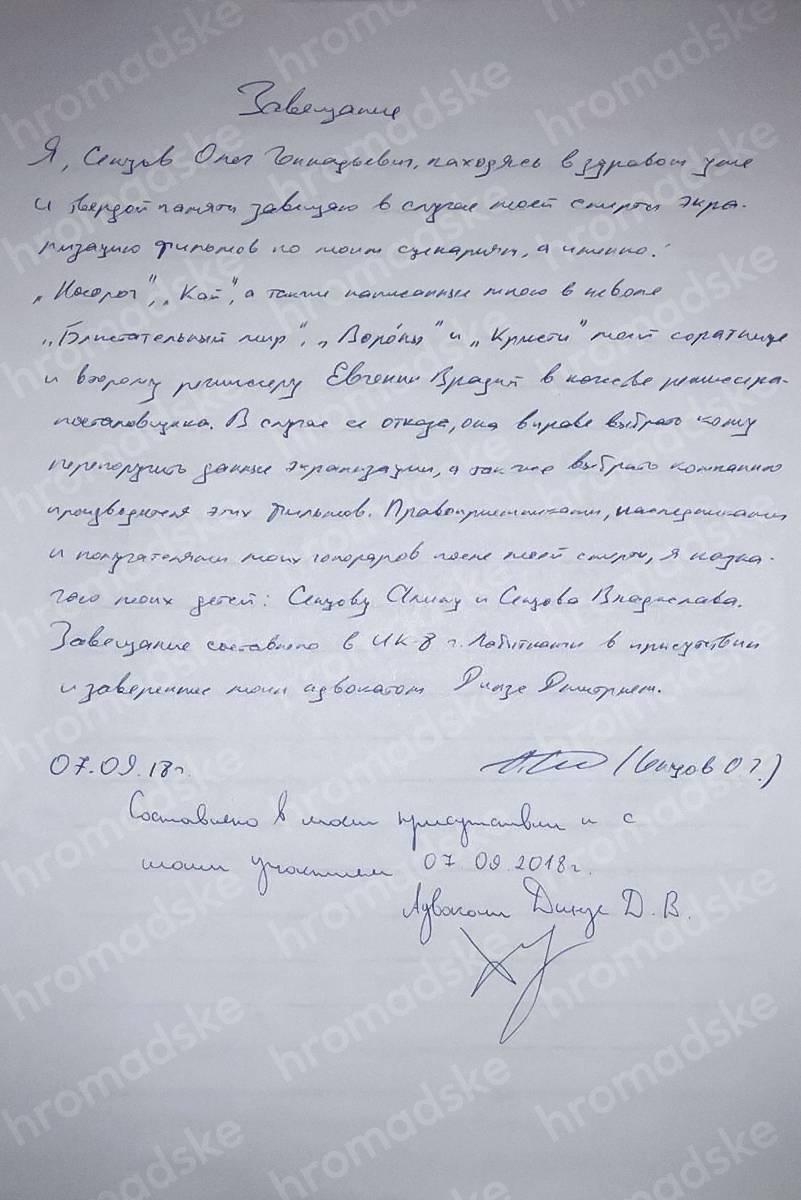 Завещание
Я, Сенцов Олег Геннадьевич, находясь в здравом уме
и твердой памяти завещаю в случае моей смерти экра-
низацию фильмов по моим сценариям, а именно:
„Носорог", „Кай", а также написанные мною в неволе
„Блистательный мир", „Воро́ны" и „Кристи" моей соратнице
и второму режиссеру Евгении Врадий в качестве режиссера-
постановщика. В случае её отказа, она вправе выбрать кому
перепоручить данные экранизации, а также выбрать компанию
производителя этих фильмов. Правоприемниками, наследниками
и получателями моих гонораров после моей смерти, я назна-
чаю моих детей: Сенцову Алину и Сенцова Владислава.
Завещание составлено в ИК-8 г. Лабытнанги в присутствии
и заверенные моим адвокатом Динзе Дмитрием.
07.09.18 г. (Сенцов О Г.)
Составлено в моем присутствии и с
моим участием 07.09.2018 г.
Адвокат Динзе Д. В.
hromadske